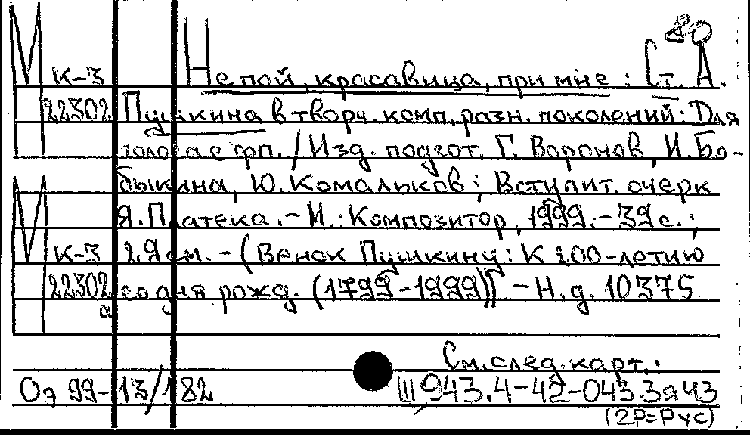 М К-3 Не пой, красавица, при мне : Ст. А.
22302 Пушкина в творч. комп. разн. поколений: Для
голоса с фп. / Изд. подгот. Г. Воронов, И. Бо-
быкина, Ю. Комальков ; Вступит. очерк
Я. Платека. - М. : Композитор, 1999. - 39 с. ;
М К-3 29 см. - (Венок Пушкину : К 200-летию
22302 со дня рожд. (1799-1999)) - Н. д. 10375
а
См. след. карт. :
Оэ 99-13/182 Ш943.4-42-043 3я43
(2Р=Рус)